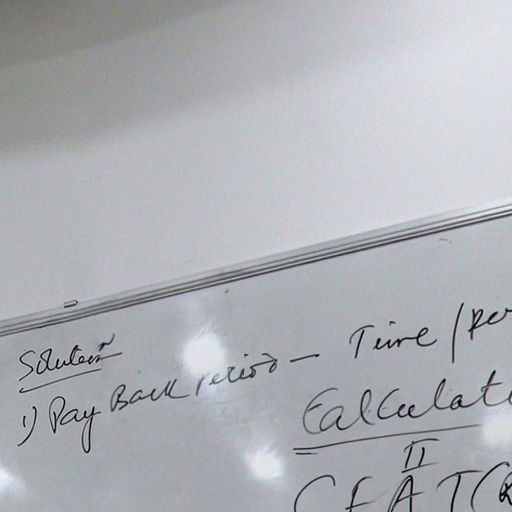 Solution
1) Pay Back period - Time / Per
Calculati
II
CFAT (R